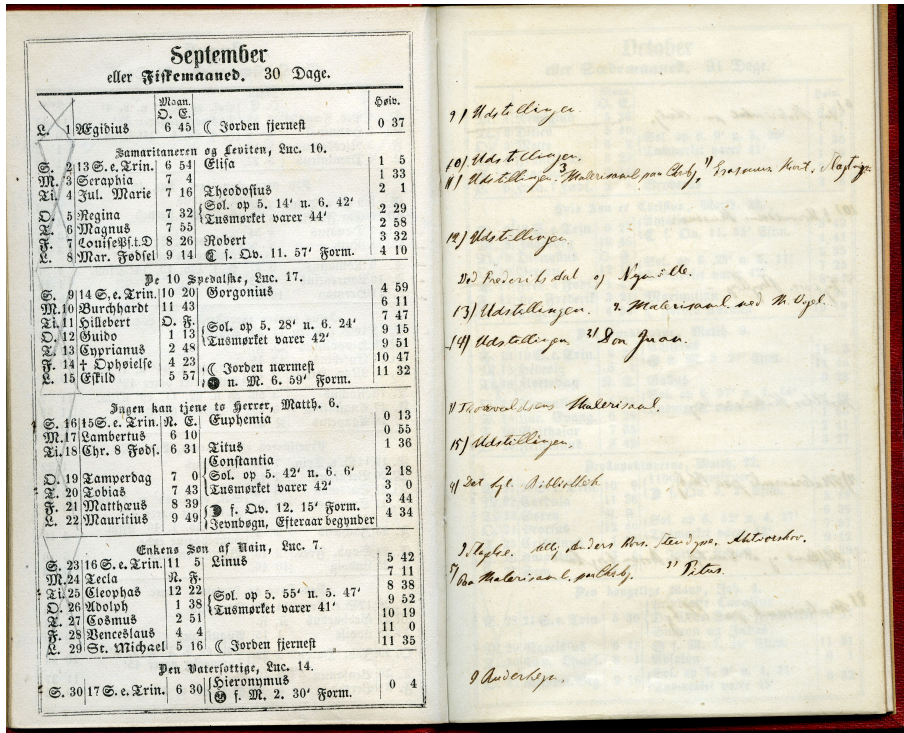 September
eller Fiskemaaned. 30 Dage.
Maan. Høiv.
O. E.
L. 1 Ægidius 6 45 ☾ Jorden fjernest 0 37
Samaritaneren og Leviten, Luc. 10.
S. 2 13 S. e. Trin. 6 54 Elisa 1 5
M. 3 Seraphia 7 4 1 33
Ti. 4 Jul. Marie 7 16 Theodosius 2 1
Sol. op 5. 14' n. 6. 42'
O. 5 Regina 7 32 Tusmørket varer 44' 2 29
T. 6 Magnus 7 55 2 58
F. 7 Louise Ps. t. D 8 26 Robert 3 32
L. 8 Mar. Fødsel 9 14 f. Qv. 11. 57' Form. 4 10
De 10 Spedalske, Luc. 17.
S. 9 14 S. e. Trin. 10 20 Gorgonius 4 59
M. 10 Burchhardt 11 43 6 11
Ti. 11 Hillebert O. F. 7 47
O. 12 Guido 1 13 Sol. op 5. 28' n. 6. 24' 9 15
T. 13 Cyprianus 2 48 Tusmørket varer 42' 9 51
F. 14 † Ophøielse 4 23 ☾ Jorden nærmest 10 47
L. 15 Eskild 5 57 n. M. 6. 59' Form. 11 32
Ingen kan tjene to Herrer, Matth. 6.
S. 16 15 S. e. Trin. N. E. Euphemia 0 13
M. 17 Lambertus 6 10 0 55
Ti. 18 Chr. 8 Føds. 6 31 Titus 1 36
Constantia
O. 19 Tamperdag 7 0 Sol. op 5. 42' n. 6. 6' 2 18
T. 20 Tobias 7 43 Tusmørket varer 42' 3 0
F. 21 Matthæus 8 39 f. Qv. 12. 15' Form. 3 44
L. 22 Mauritius 9 49 Jevndøgn, Efteraar begynder 4 34
Enkens Søn af Nain, Luc. 7.
S. 23 16 S. e. Trin. 11 5 Linus 5 42
M. 24 Tecla N. F. 7 11
Ti. 25 Cleophas 12 22 8 38
O. 26 Adolph 1 38 Sol. op 5. 55' n. 5. 47' 9 52
T. 27 Cosmus 2 51 Tusmørket varer 41' 10 19
F. 28 Venceslaus 4 4 11 0
L. 29 St. Michael 5 16 ☾ Jorden fjernest 11 35
Den Vatersottige, Luc. 14.
S. 30 17 S. e. Trin. 6 30 Hieronymus 0 4
f. M. 2. 30' Form.
9) Udstillingen
10) Udstillingen.
11) Udstillingen. 3 Malerisaml paa Chrbg, Erasmus
12) Udstillingen
Ved Frederiksdal og Nymølle.
13) Udstillingen. 2. Malerisaml ved
14) Udstillingen Don Juan.
Thorvaldsens Malerisaml.
15) Udstillingen.
Det kgl. Bibliothek
Anders
Paa Malerisaml. paa Chrbg.